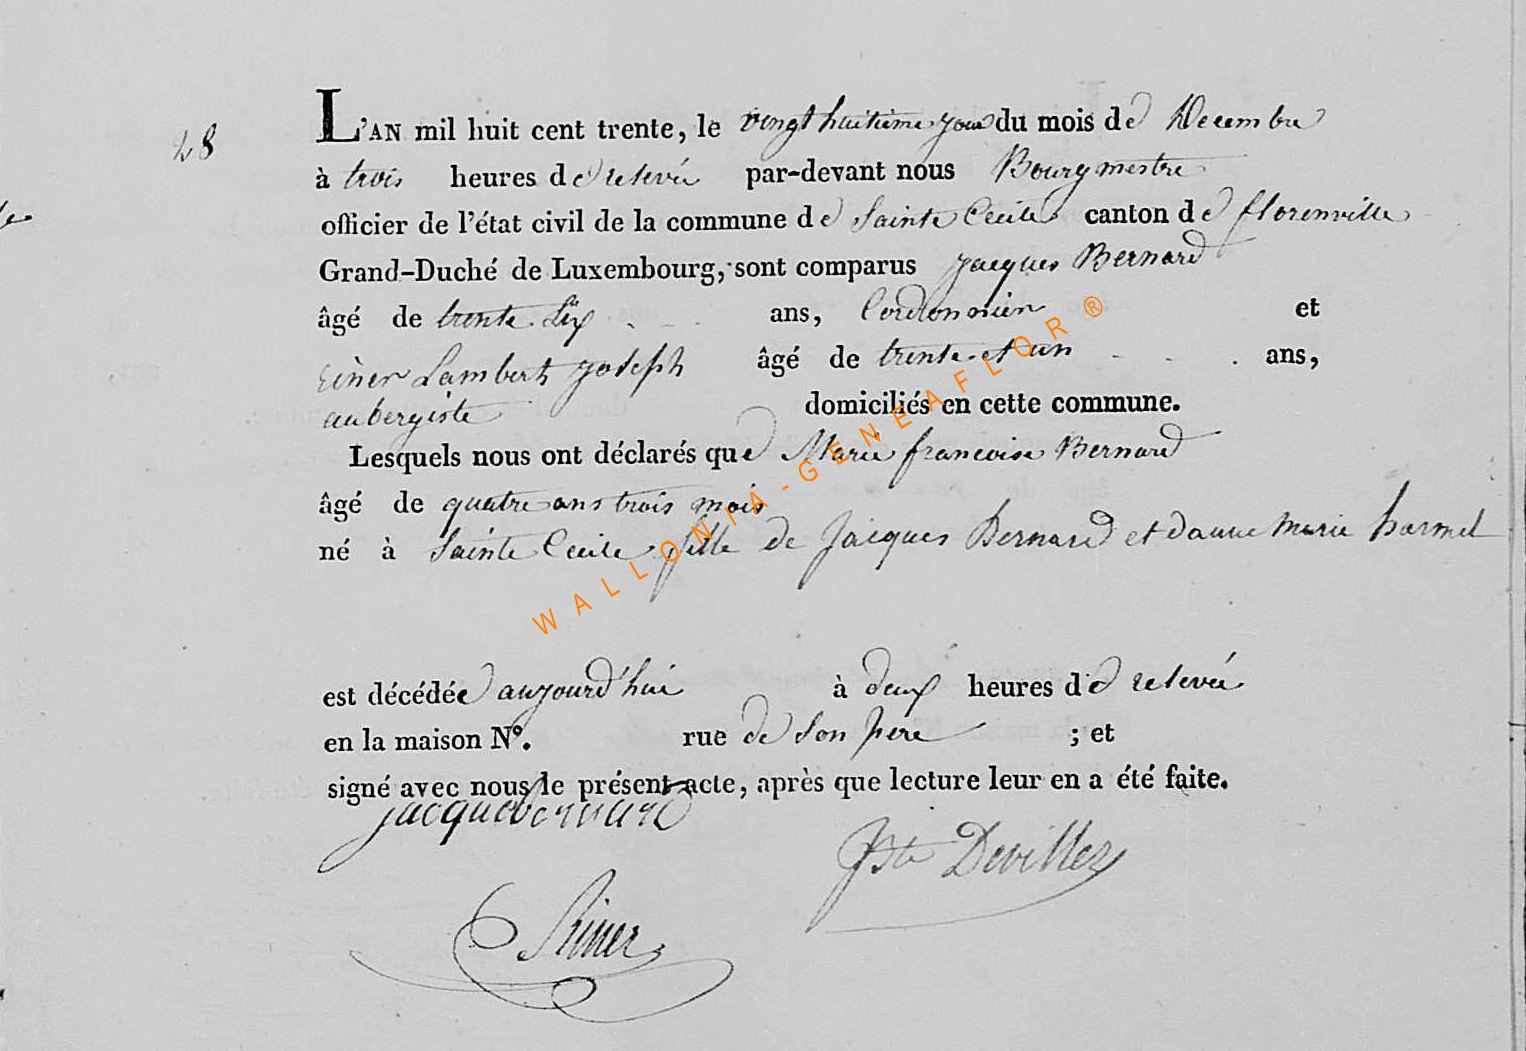 28
L'AN mil huit cent trente, le vingt huitieme jour du mois de Decembre
à trois heures de relevée par-devant nous Bourgmestre
officier de l'état civil de la commune de Sainte Cecile canton de florenville
Grand-Duché de Luxembourg, sont comparus jacques Bernard
âgé de trente Six ans, Cordonnier et
riner Lambert joseph âgé de trente et un ans,
aubergiste domiciliés en cette commune.
Lesquels nous ont déclarés que Marie francoise Bernard
âgé de quatre ans trois mois
né à Sainte Cecile fille de Jacques Bernard et d'anne Marie harmel
est décédée aujourd'hui à deux heures de relevée
en la maison N°. rue de Son pere ; et
signé avec nous le présent acte, après que lecture leur en a été faite.
jacque bernard
Jste Devillez
Riner
WALLONIA-GENEAFLOR®